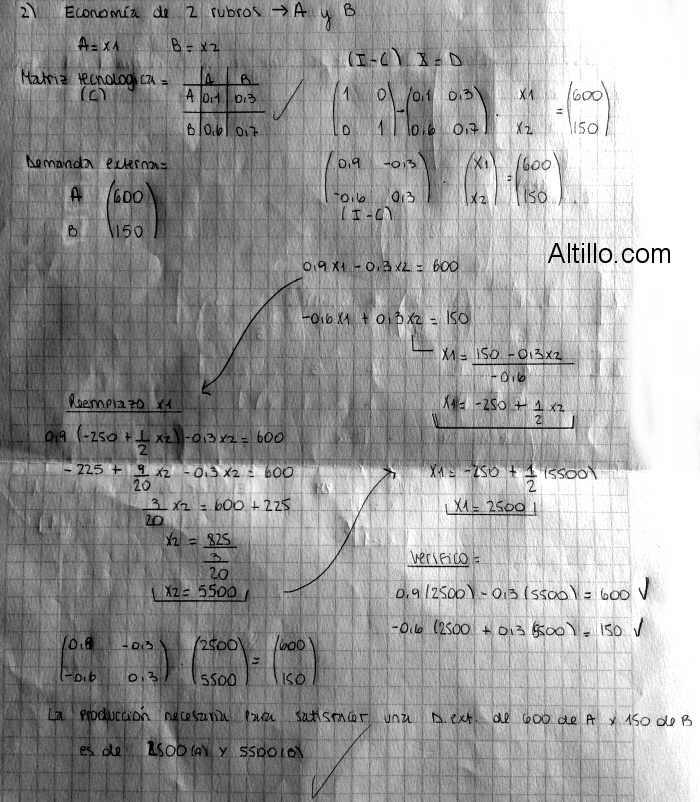 2) Economía de 2 rubros → A y B
A = x1 B = x2
(I-C) X = D
Matriz tecnologica =
(C)
A B
A 0,1 0,3
B 0,6 0,7
(1 0) - (0,1 0,3) . x1 = (600)
(0 1) (0,6 0,7) x2 (150)
Demanda externa =
A (600)
B (150)
(0,9 -0,3) . (x1) = (600)
(-0,6 0,3) (x2) (150)
(I-C)
Altillo.com
0,9 x1 - 0,3 x2 = 600
-0,6 x1 + 0,3 x2 = 150
x1 = 150 - 0,3 x2
-0,6
x1 = -250 + 1/2 x2
Reemplazo x1
0,9 (-250 + 1/2 x2) - 0,3 x2 = 600
-225 + 9/20 x2 - 0,3 x2 = 600
3/20 x2 = 600 + 225
x2 = 825
3
20
x2 = 5500
x1 = -250 + 1/2 (5500)
x1 = 2500
Verifico =
0,9 (2500) - 0,3 (5500) = 600 ✓
-0,6 (2500 + 0,3 (5500) = 150 ✓
(0,9 -0,3) . (2500) = (600)
(-0,6 0,3) (5500) (150)
La producción necesaria para satisfacer una D.ext. de 600 de A y 150 de B
es de 2500 (A) y 5500 (B)